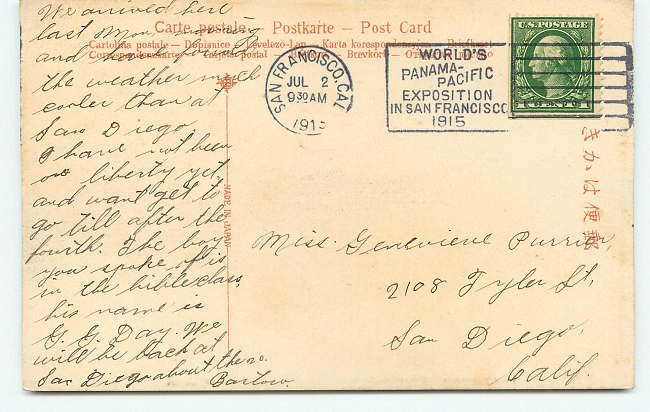 We arrived here
last Mon. morning
and
the weather much
cooler than at
San Diego.
I have not been
on liberty yet
and want get to
go till after the
fourth. The boy
you spoke of is
in the bible class,
his name is
G. G. Day. We
will be back at
San Diego about the 20.
Barlow.
Carte postale – Postkarte – Post Card
Cartolina postale – Dopisnice – Levelezo-Lap – Karta korespondencyjna –
MADE IN JAPAN
SAN FRANCISCO, CAL.
JUL 2
9 30 AM
1915
WORLD'S
PANAMA-
PACIFIC
EXPOSITION
IN SAN FRANCISCO
1915
U.S. POSTAGE
きかは便郵
Miss. Genevieve Purrier,
2108 Tyler St,
San Diego,
Calif.